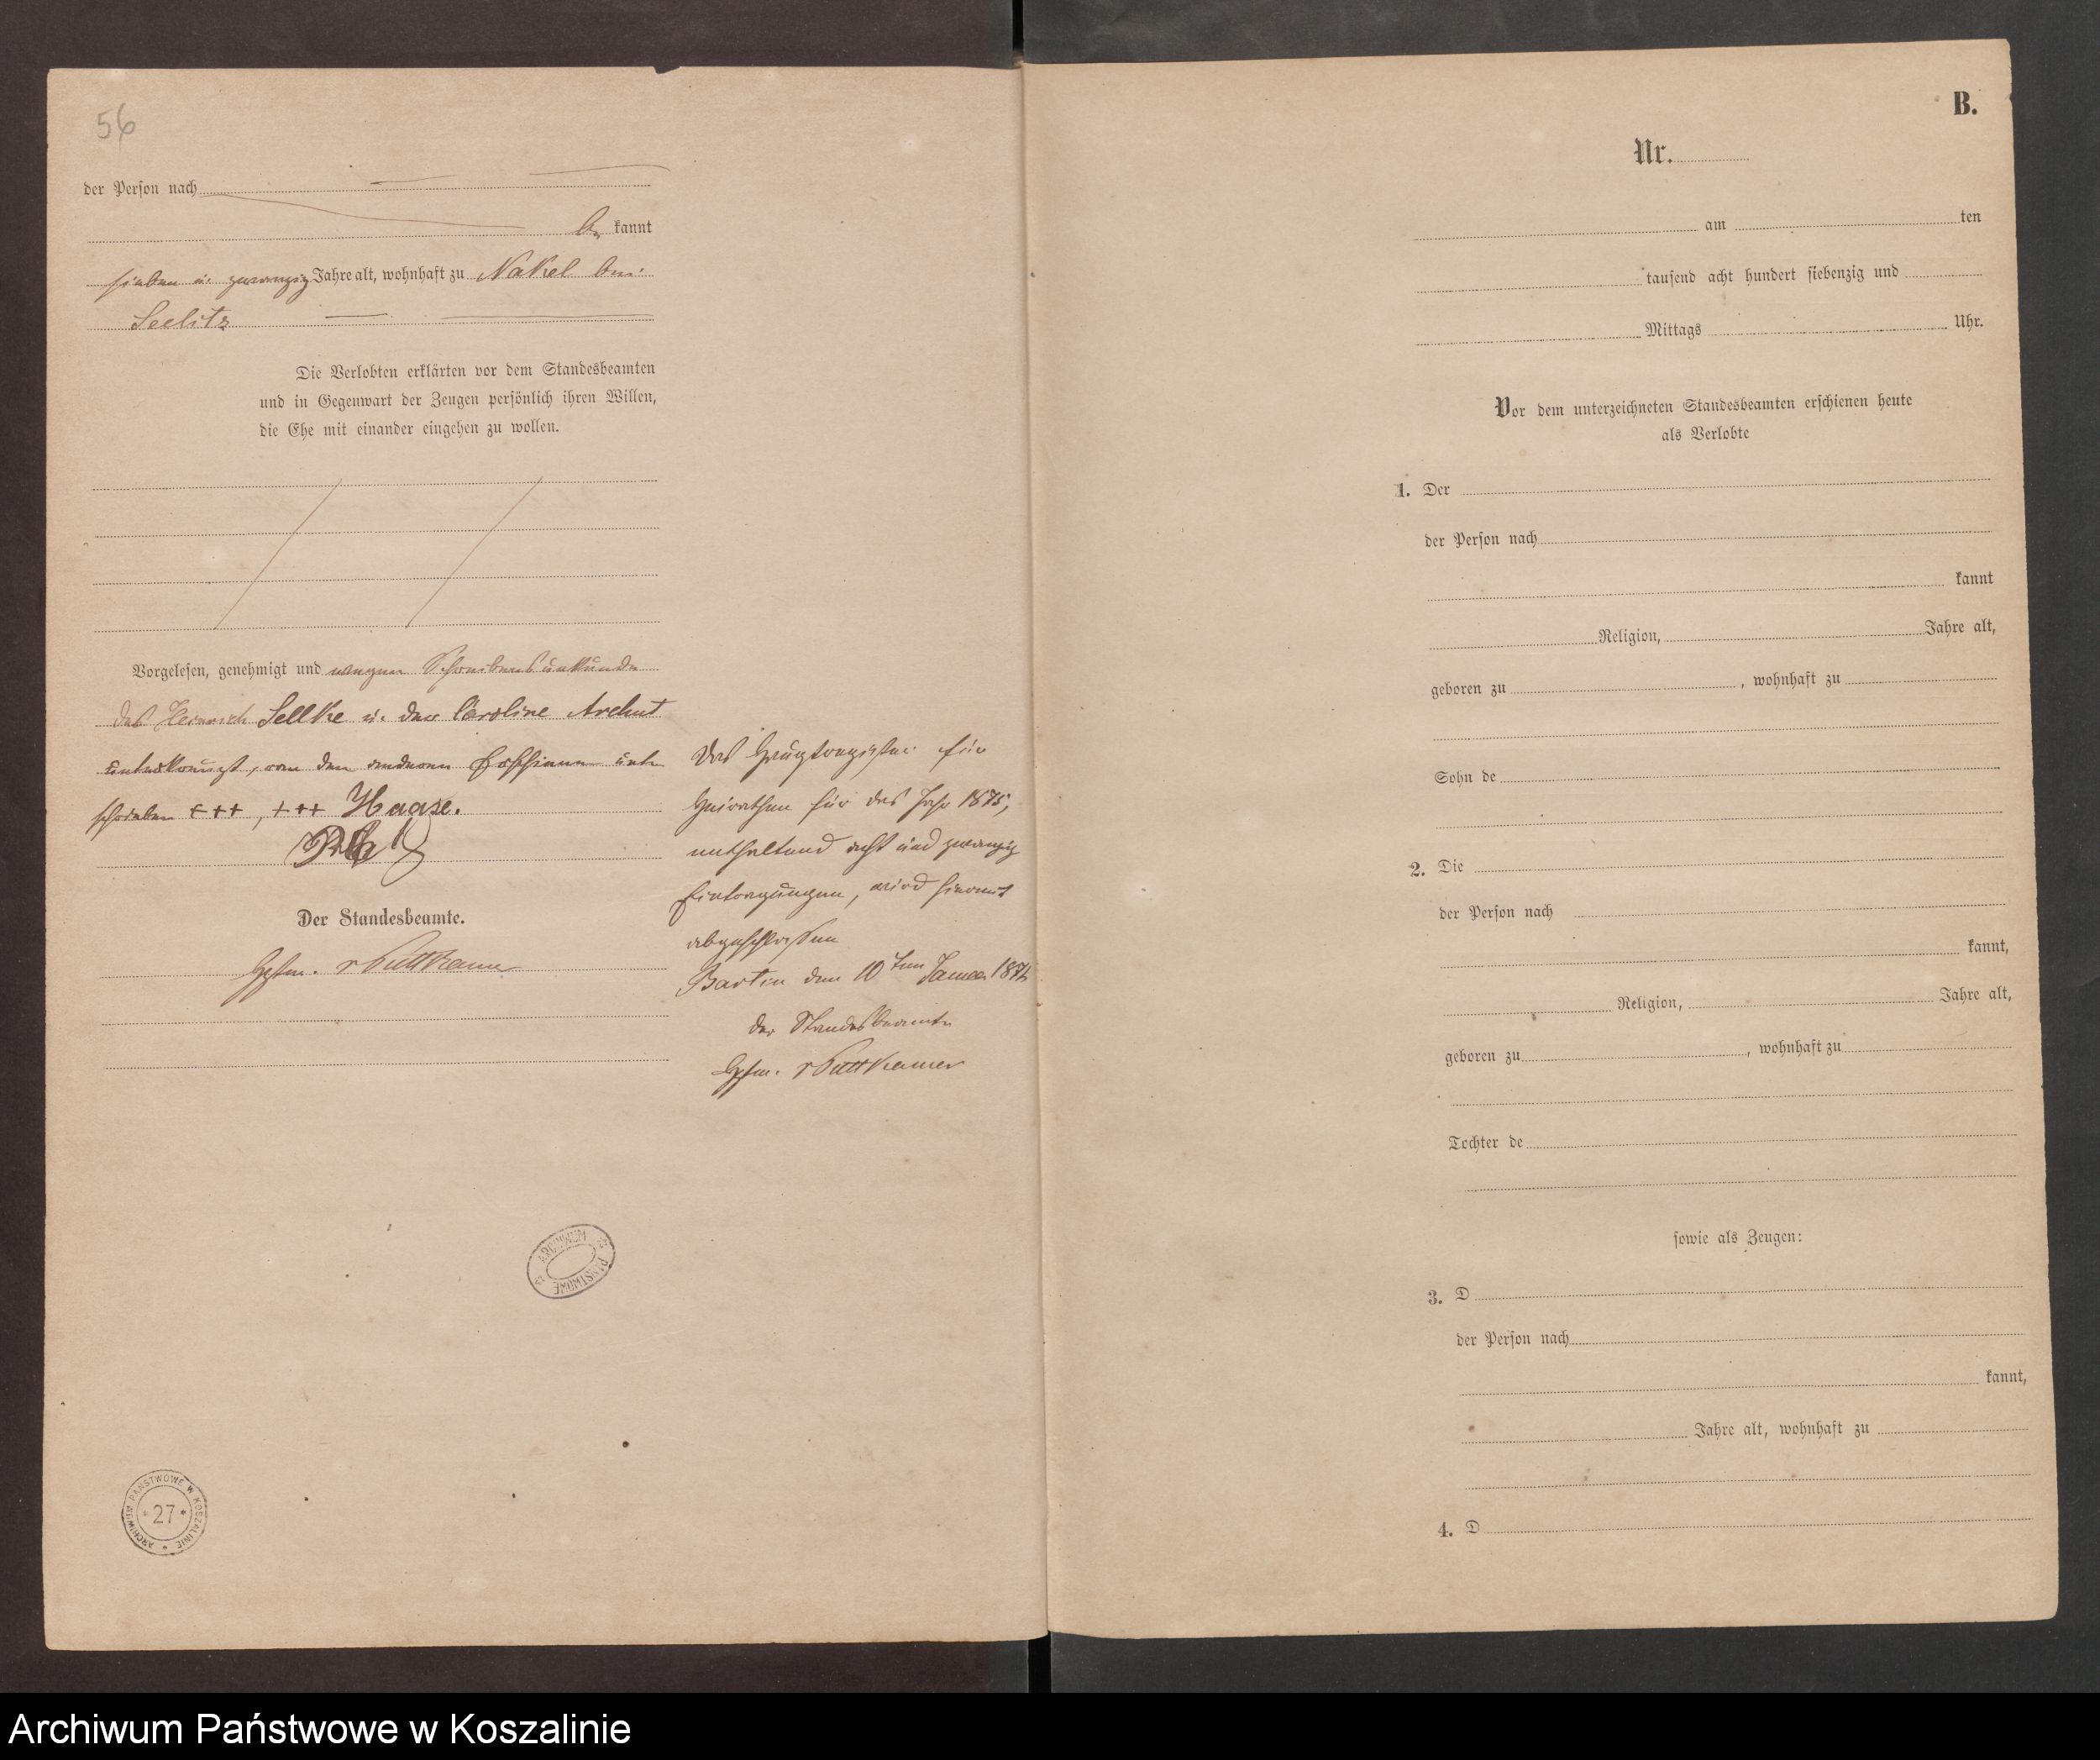 56
der Person nach
be kannt
sieben u. zwanzig Jahre alt, wohnhaft zu Nakel bei
Seelitz
Die Verlobten erklärten vor dem Standesbeamten
und in Gegenwart der Zeugen persönlich ihren Willen,
die Ehe mit einander eingehen zu wollen.
Vorgelesen, genehmigt und wegen Schreibensunkunde
des Heinrich Sellke u. der Caroline Archut
unterkreuzt, von den anderen Erschienen unter
schrieben +++, +++ Haase.
Der Standesbeamte.
v Puttkamer
Das Hauptregister für
Heirathen für das Jahr 1875,
enthaltend acht und zwanzig
Eintragungen, wird hiermit
abgeschlossen
Bartin den 10ten Januar
der Standesbeamte
v Puttkamer
ARCHIWUM PAŃSTWOWE
ARCHIWUM PAŃSTWOWE W KOSZALINIE
* 27 *
B.
Nr.
am ten
tausend acht hundert siebenzig und
Mittags Uhr.
Vor dem unterzeichneten Standesbeamten erschienen heute
als Verlobte
1. Der
der Person nach
kannt
Religion, Jahre alt,
geboren zu , wohnhaft zu
Sohn de
2. Die
der Person nach
kannt,
Religion, Jahre alt,
geboren zu , wohnhaft zu
Tochter de
sowie als Zeugen:
3. D
der Person nach
kannt,
Jahre alt, wohnhaft zu
4. D
Archiwum Państwowe w Koszalinie